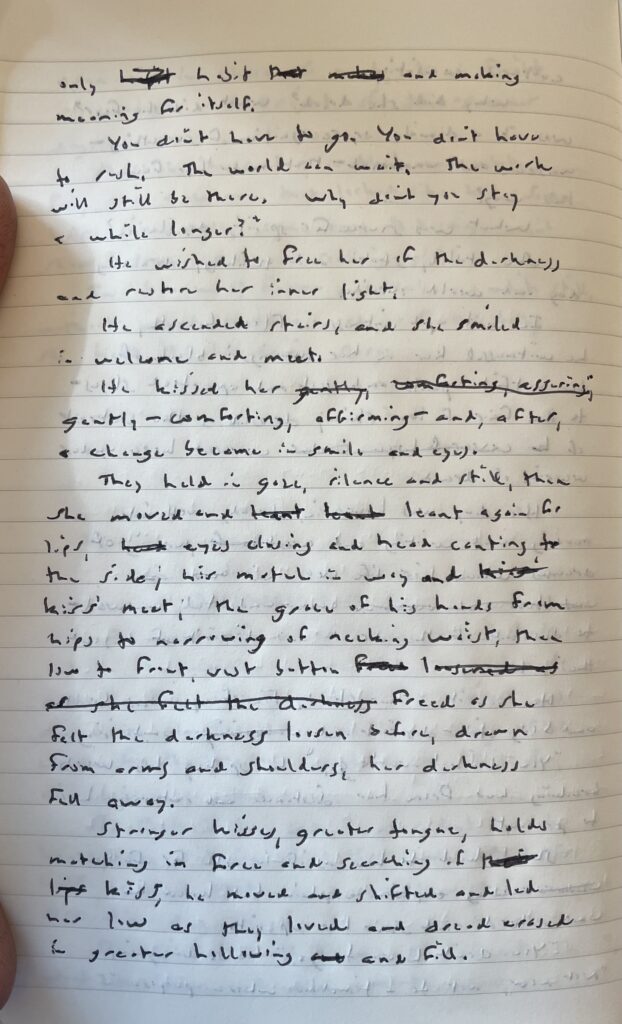 only habit and making
meaning for itself.
You don't have to go. You don't have
to rush. The world can wait. The work
will still be there. Why don't you stay
a while longer?"
He wished to free her of the darkness
and restore her inner light.
He ascended stairs, and she smiled
in welcome and meet.
He kissed her gently, comforting, assuring,
gently – comforting, affirming – and, after,
a change became in smile and eyes.
They held in gaze, silence and still, then
she moved and leant leant leant again for
lips, eyes closing and head canting to
the side; his match in way and kiss'
kiss' meet; the grace of his hands from
hips to narrowing of waist, then
low to front, vest button loosened as
as she felt the darkness freed as she
felt the darkness loosen before, drawn
from arms and shoulders, her darkness
fall away.
Stronger kisses, greater tongue, holds
matching in force and searching of
lips kiss, he moved and shifted and led
her low as they loved and dread erased
in greater hollowing and fill.